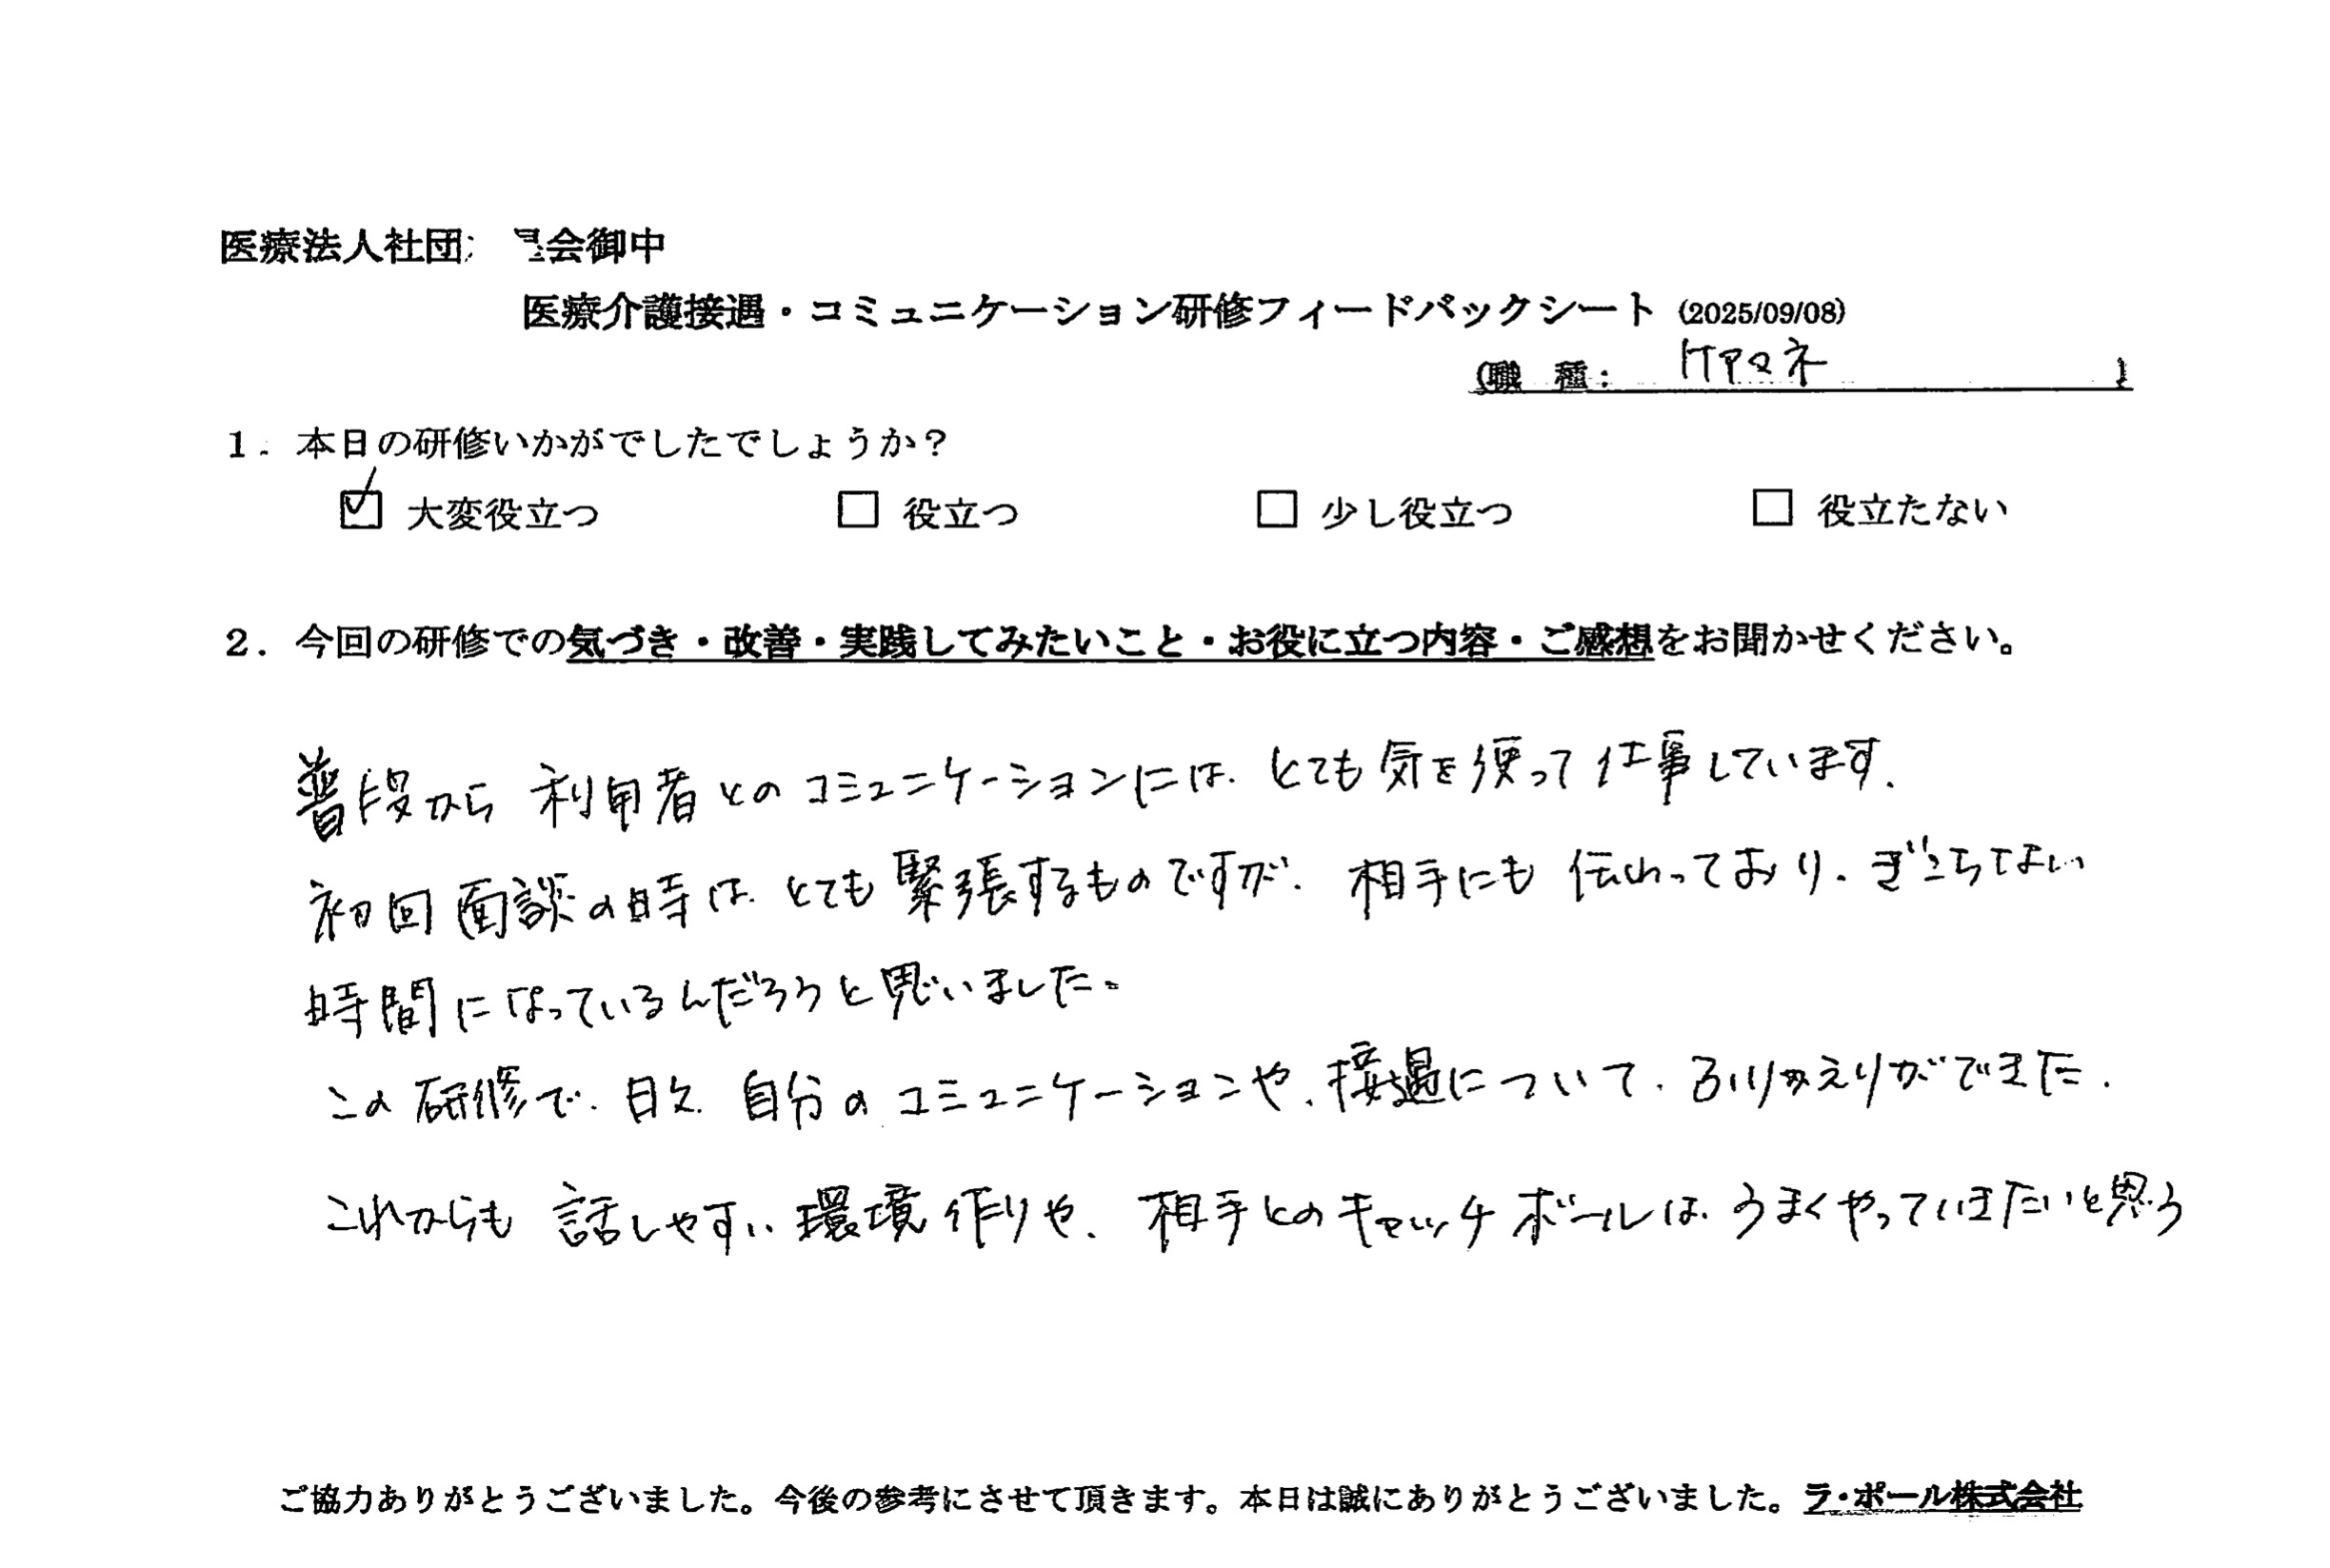 医療法人社団 会御中
医療介護接遇・コミュニケーション研修フィードバックシート (2025/09/08)
(職 種: ケアマネ )
1. 本日の研修いかがでしたでしょうか?
☑ 大変役立つ □ 役立つ □ 少し役立つ □ 役立たない
2. 今回の研修での気づき・改善・実践してみたいこと・お役に立つ内容・ご感想をお聞かせください。
普段から利用者とのコミュニケーションには、とても気を使って仕事しています。
初回面談の時は、とても緊張するものですが、相手にも伝わっており、ぎこちない
時間になっているんだろうと思いました。
この研修で、日々、自分のコミュニケーションや、接遇について、ふりかえりができた。
これからも話しやすい環境作りや、相手とのキャッチボールは、うまくやっていきたいと思う
ご協力ありがとうございました。今後の参考にさせて頂きます。本日は誠にありがとうございました。ラ・ポール株式会社